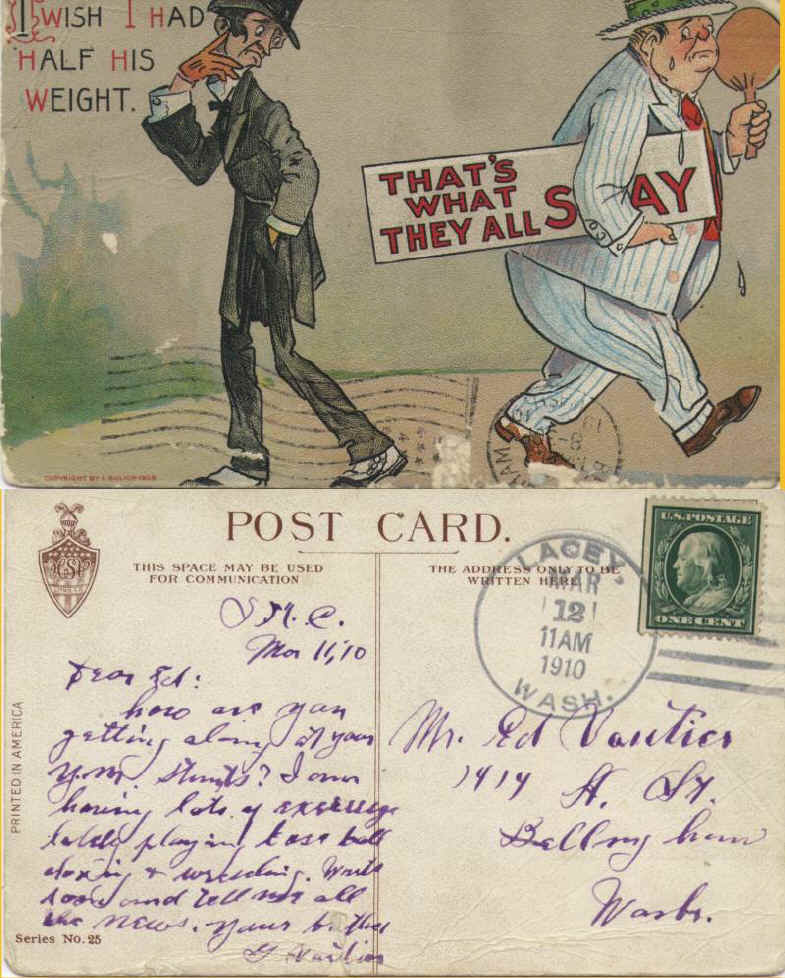 I WISH I HAD
HALF HIS
WEIGHT.
THAT'S
WHAT
THEY ALL SAY
COPYRIGHT BY I. GOLLICH 1908
AM
POST CARD.
THIS SPACE MAY BE USED
FOR COMMUNICATION
THE ADDRESS ONLY TO BE
WRITTEN HERE
LACEY,
MAR
12
11AM
1910
WASH.
U.S. POSTAGE
ONE CENT
S.M.C.
Mar 11, '10
Dear Ed:
how are you
getting along at your
stunts? I am
having lots of
lately playing base ball
boxing & wrestling. Write
soon and tell me all
the news. your brother
G Vautier
Mr. Ed Vautier
1414 H. St.
Bellingham
Wash.
PRINTED IN AMERICA
Series No. 25